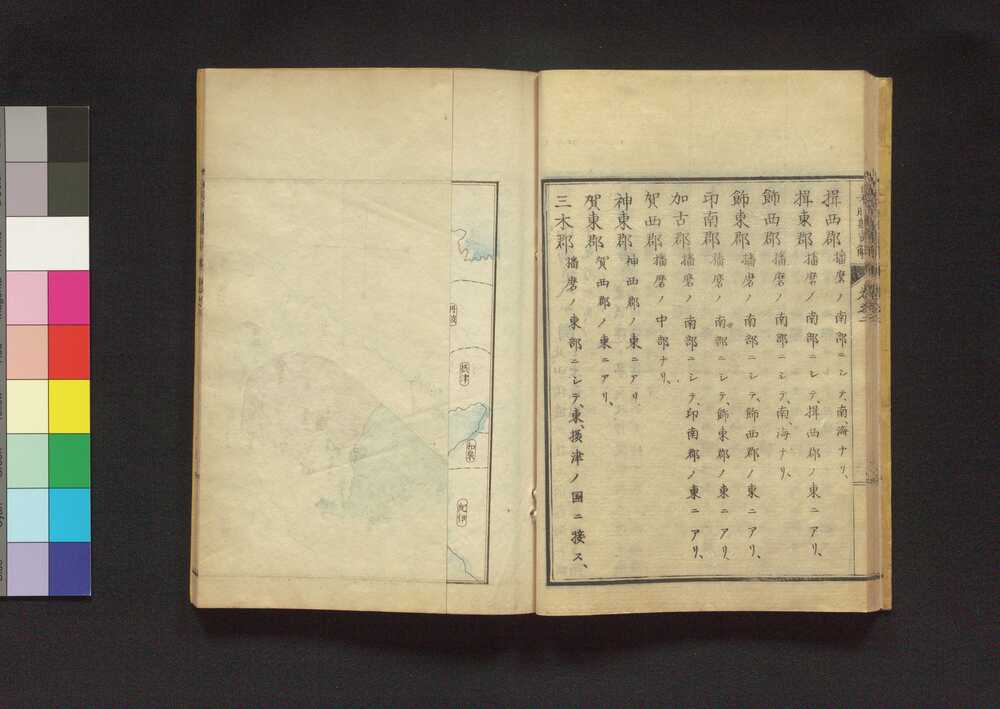 揖西郡 播磨ノ南部ニシテ、南、海ナリ、
揖東郡 播磨ノ南部ニシテ、揖西郡ノ東ニアリ、
飾西郡 播磨ノ南部ニシテ、南、海ナリ、
飾東郡 播磨ノ南部ニシテ、飾西郡ノ東ニアリ、
印南郡 播磨ノ南部ニシテ、飾東郡ノ東ニアリ、
加古郡 播磨ノ南部ニシテ、印南郡ノ東ニアリ、
賀西郡 播磨ノ中部ナリ、
神東郡 神西郡ノ東ニアリ、
賀東郡 賀西郡ノ東ニアリ、
三木郡 播磨ノ東部ニシテ、東、摂津ノ国ニ接ス、
丹波
摂津
和泉
紀伊